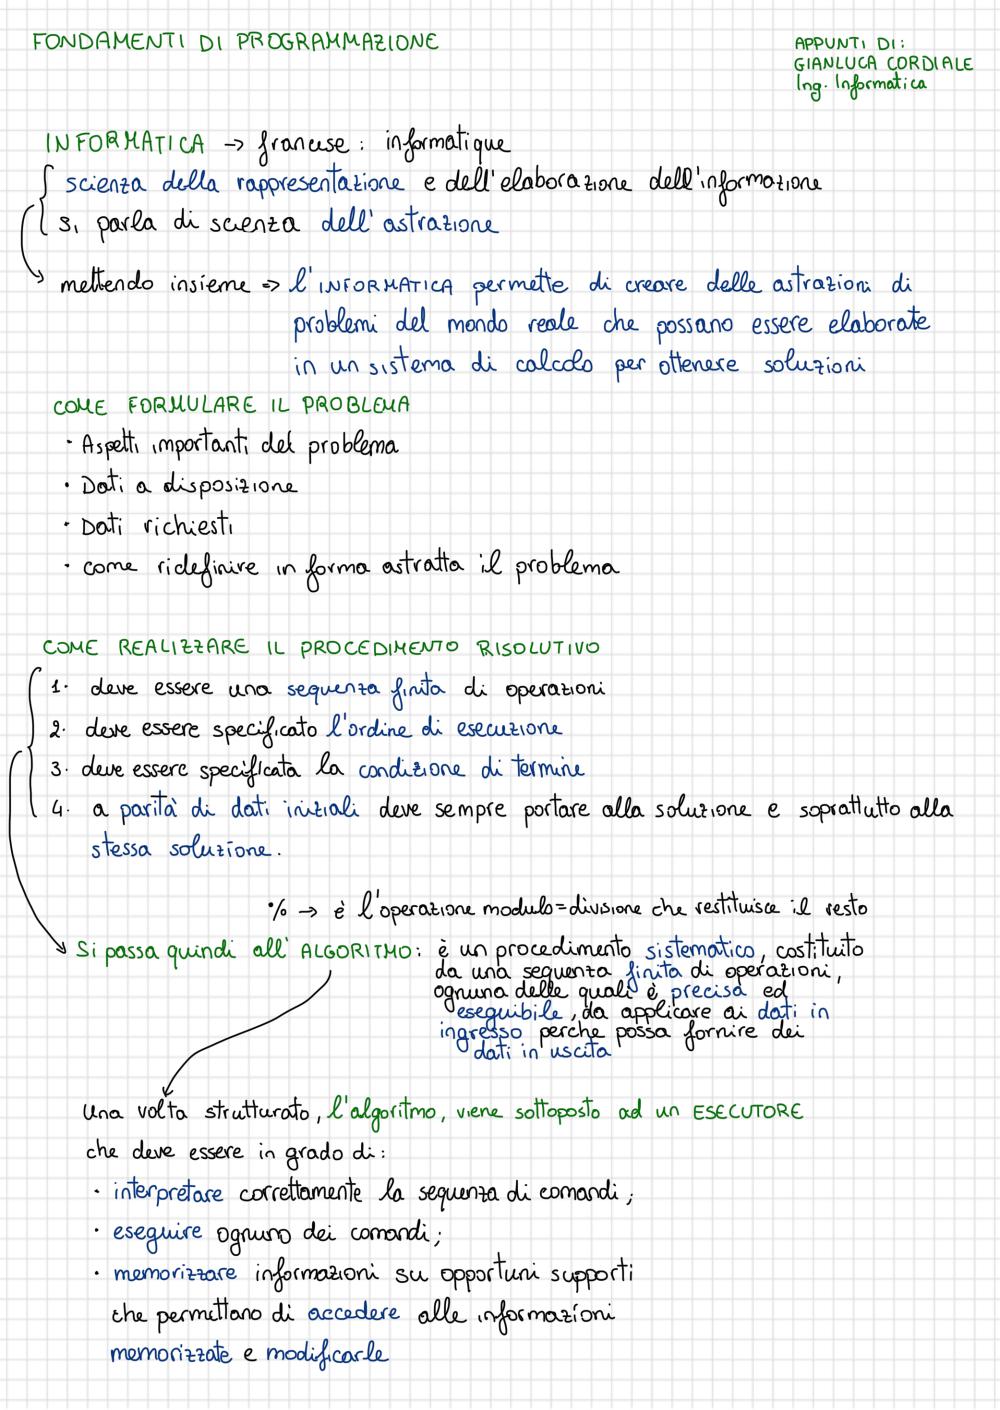 FONDAMENTI DI PROGRAMMAZIONE
APPUNTI DI:
GIANLUCA CORDIALE
Ing. Informatica
INFORMATICA → francese: informatique
scienza della rappresentazione e dell'elaborazione dell'informazione
Si parla di scienza dell'astrazione
mettendo insieme => l'INFORMATICA permette di creare delle astrazioni di
problemi del mondo reale che possano essere elaborate
in un sistema di calcolo per ottenere soluzioni
COME FORMULARE IL PROBLEMA
· Aspetti importanti del problema
· Dati a disposizione
· Dati richiesti
· come ridefinire in forma astratta il problema
COME REALIZZARE IL PROCEDIMENTO RISOLUTIVO
1. deve essere una sequenza finita di operazioni
2. deve essere specificato l'ordine di esecuzione
3. deve essere specificata la condizione di termine
4. a parità di dati iniziali deve sempre portare alla soluzione e soprattutto alla
stessa soluzione.
% → è l'operazione modulo=divisione che restituisce il resto
Si passa quindi all'ALGORITMO: è un procedimento sistematico, costituito
da una sequenza finita di operazioni,
ognuna delle quali è precisa ed
eseguibile, da applicare ai dati in
ingresso perche possa fornire dei
dati in uscita
Una volta strutturato, l'algoritmo, viene sottoposto ad un ESECUTORE
che deve essere in grado di:
· interpretare correttamente la sequenza di comandi;
· eseguire ognuno dei comandi;
· memorizzare informazioni su opportuni supporti
che permettano di accedere alle informazioni
memorizzate e modificarle